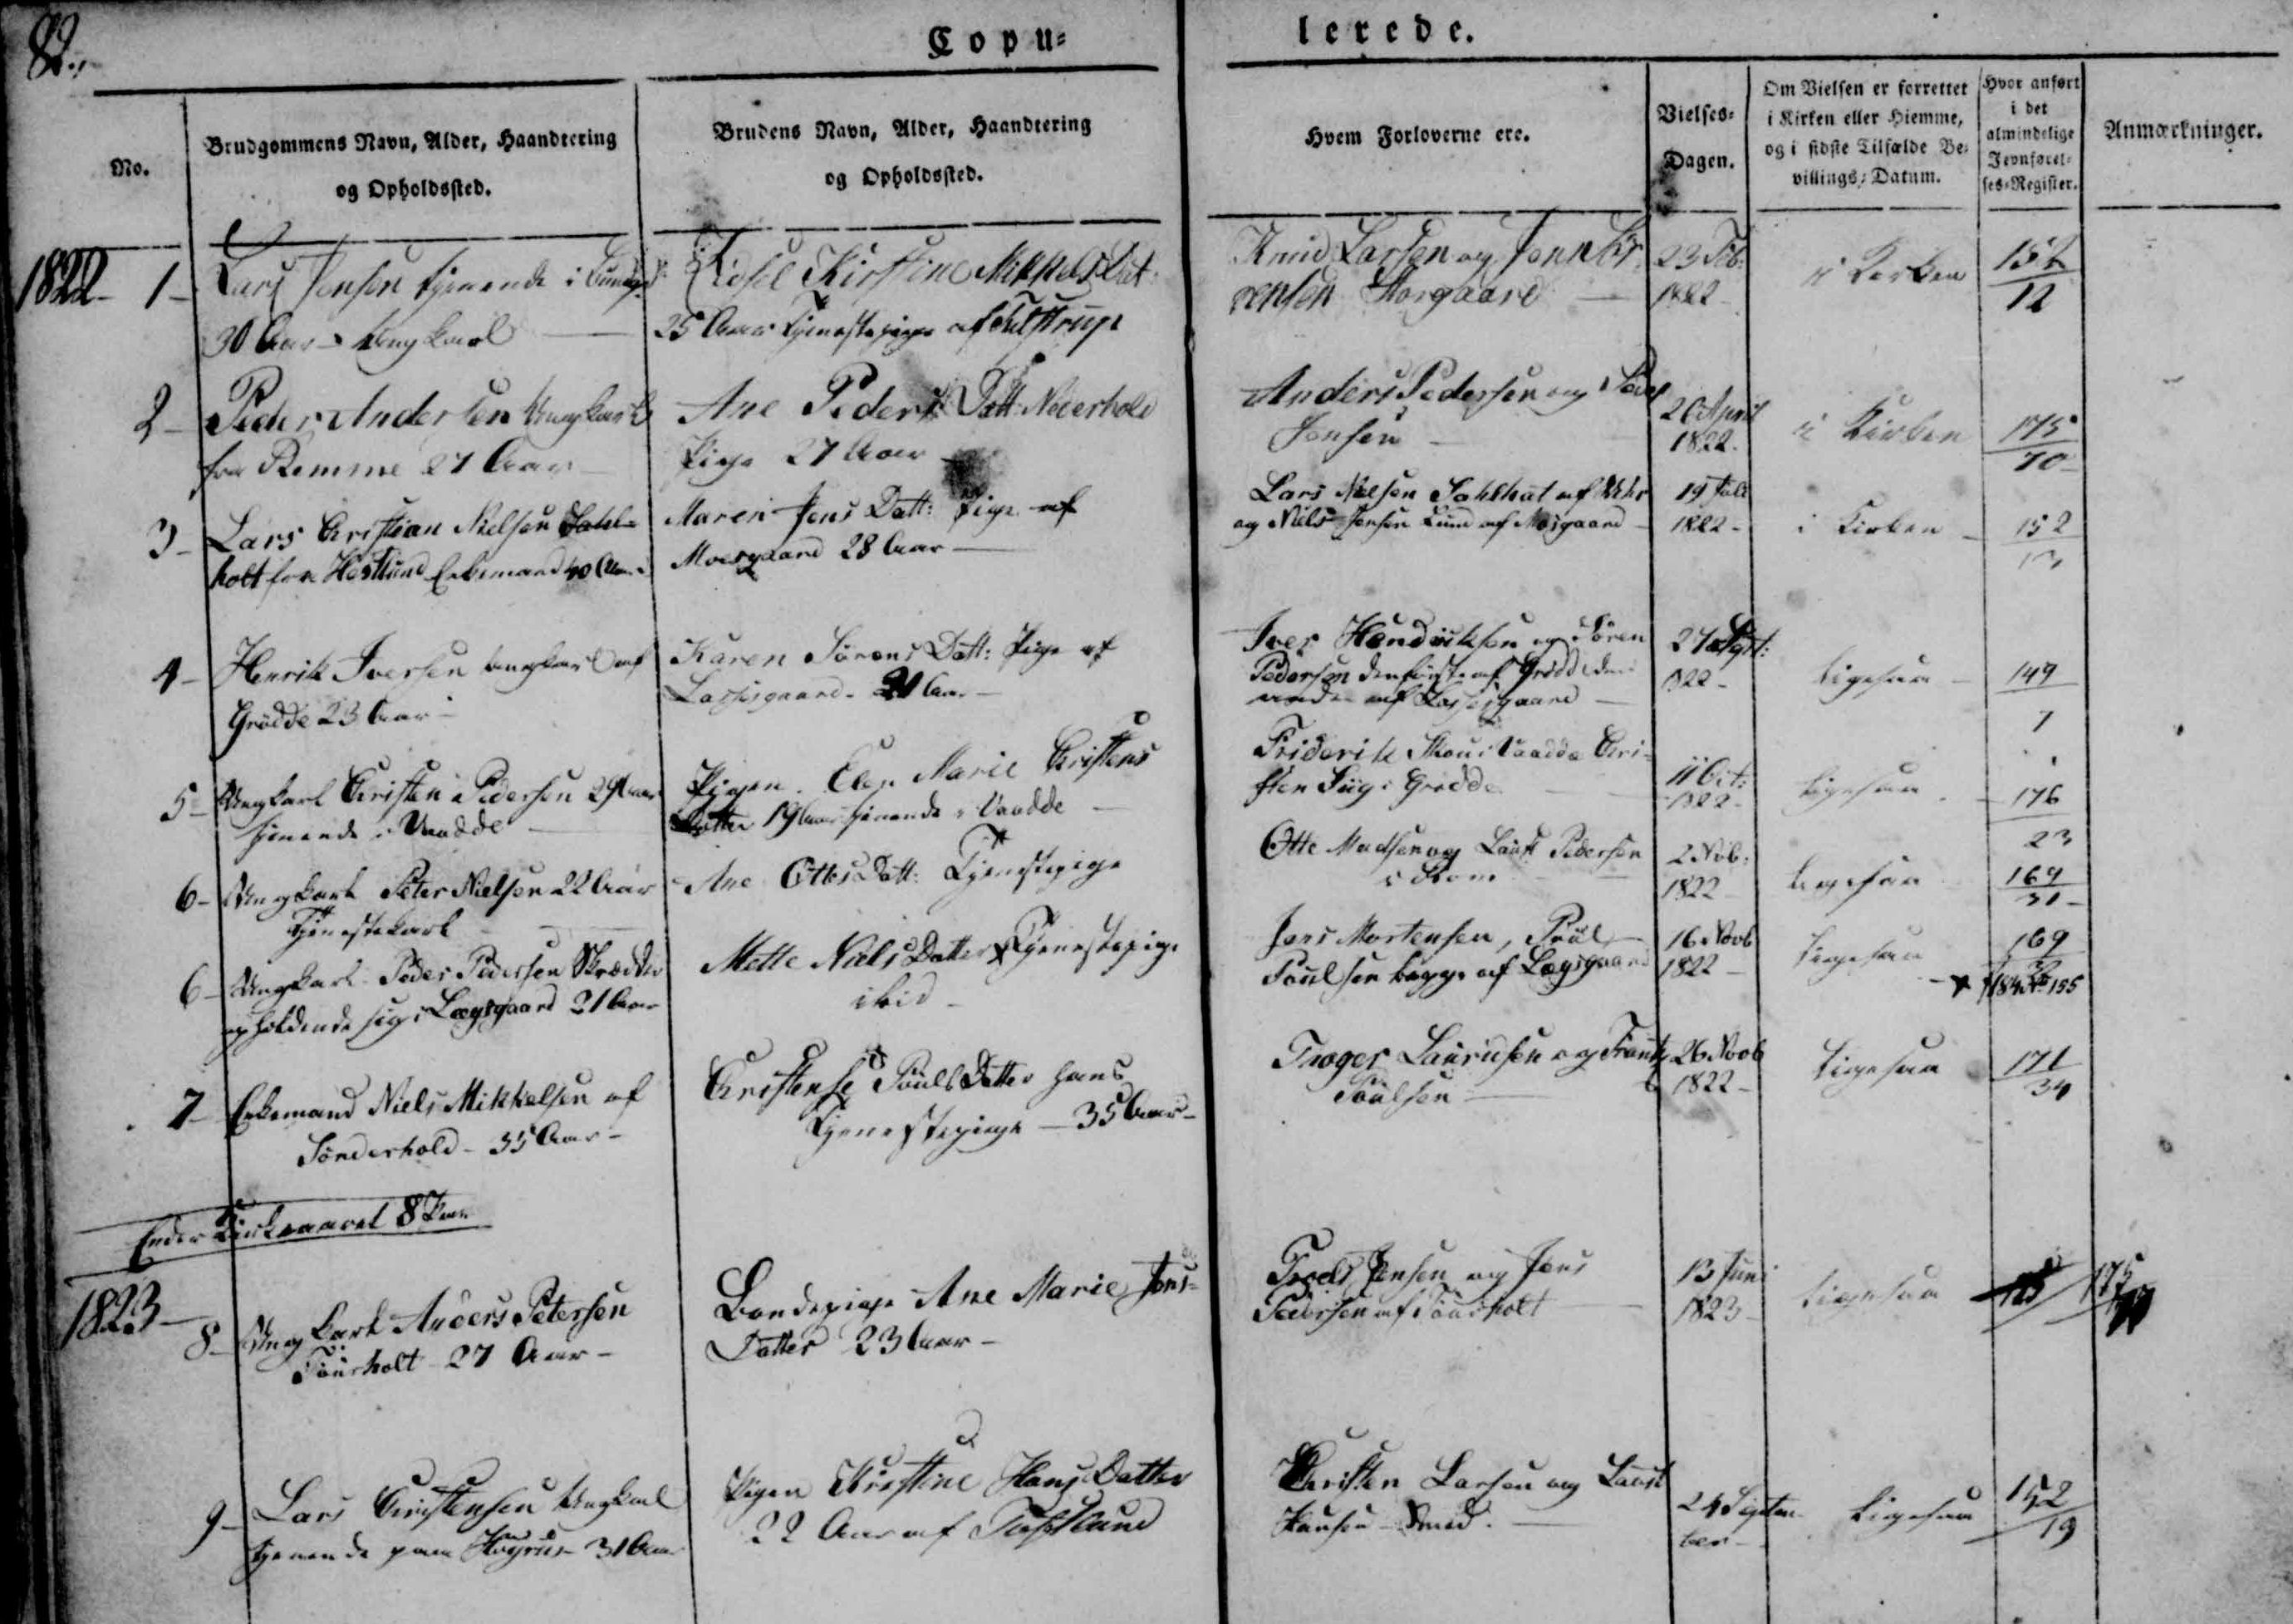 82.
Copu=
lerede.
No.
Brudgommens Navn, Alder, Haandtering
og Opholdssted.
Brudens Navn, Alder, Haandtering
og Opholdssted.
Hvem Forloverne ere.
Vielses=
Dagen.
Om Vielsen er forrettet
i Kirken eller Hiemme,
og i sidste Tilfælde Be=
villings=Datum.
Hvor anført
i det
almindelige
Jevnførel=
ses=Register.
Anmærkninger.
1822- 1-
Lars Jensen tjenende i
30 Aar - Ungkarl
Kirstine Mikkels Dat
25 Aar Tjenestepige af
Knud Larsen og Jens
rensen Korgaard
23 Feb:
1822
i Kirken
152
12
2-
Peder Andersen Ungkarl
fra Remme 27 Aar
Ane Peders Datt: Nederhold
Pige 27 Aar
Anders Pedersen og Peder
Jensen
20 April
1822.
i Kirken
175
70
3-
Lars Christian Nielsen Dahl=
holt fra Hestlund Enkemand 40 Aar
Maren Jens Datt: Pige af
Moesgaard 28 Aar
Lars Nielsen Dahlholt af
og Niels Jensen Lund af Mosgaard
19 Juli
1822-
i Kirken
152
13
4-
Henrik Iversen Ungkarl af
Grødde 23 Aar
Karen Sörens Datt: Pige af
Lassesgaard - Aar
Iver Hendriksen og Sören
Pedersen den første af Grödde den
anden af Lassesgaard
27 Sept:
1822-
ligesaa
149
7
5-
Ungkarl Christen Pedersen 29 Aar
tjenende i Vaadde
Pigen Else Marie Christens
Datter 19 Aar tjenende i Vaadde
Friderik Skou i Vaadde Chri=
sten Siig i Grødde
11 Oct:
1822-
ligesaa
176
23
6-
Ungkarl Peter Nielsen 22 Aar
Tjenestekarl
Ane Ottes Datt: Tjenestepige
Otte Madsen og Laust Pedersen
2 Nvb:
1822
ligesaa
169
31
6-
Ungkarl Peder Pedersen Skrædder
opholdende sig i Lægsgaard 21 Aar
Mette Niels Datter Tjenestepige
ibid
Jens Mortensen, Poul
Poulsen begge af Lægsgaard
16 Novb
1822
ligesaa
169
7-
Enkemand Niels Mikkelsen af
Sönderhold - 35 Aar -
Christense Pouls Datter hans
Tjenestepige - 35 Aar-
Troger Lauridsen og Frantz
Poulsen
26 Novb
1822-
ligesaa
171
34
Ender Kirkeaaret 8 Par
1823-
8-
Ungkarl Anders Petersen
Tourholt 27 Aar-
Bondepige Ane Marie Jens=
Datter 23 Aar-
Troels Jensen og Jens
Pedersen af Tourholt
13 Juni
1823-
ligesaa
175
9-
Lars Christensen Ungkarl
tjenende paa 31 Aar
Pigen Kirstine Hans Datter
22 Aar af
Christen Larsen og Laust
Hansen Smed.
24 Septem
ber-
ligesaa
152
19